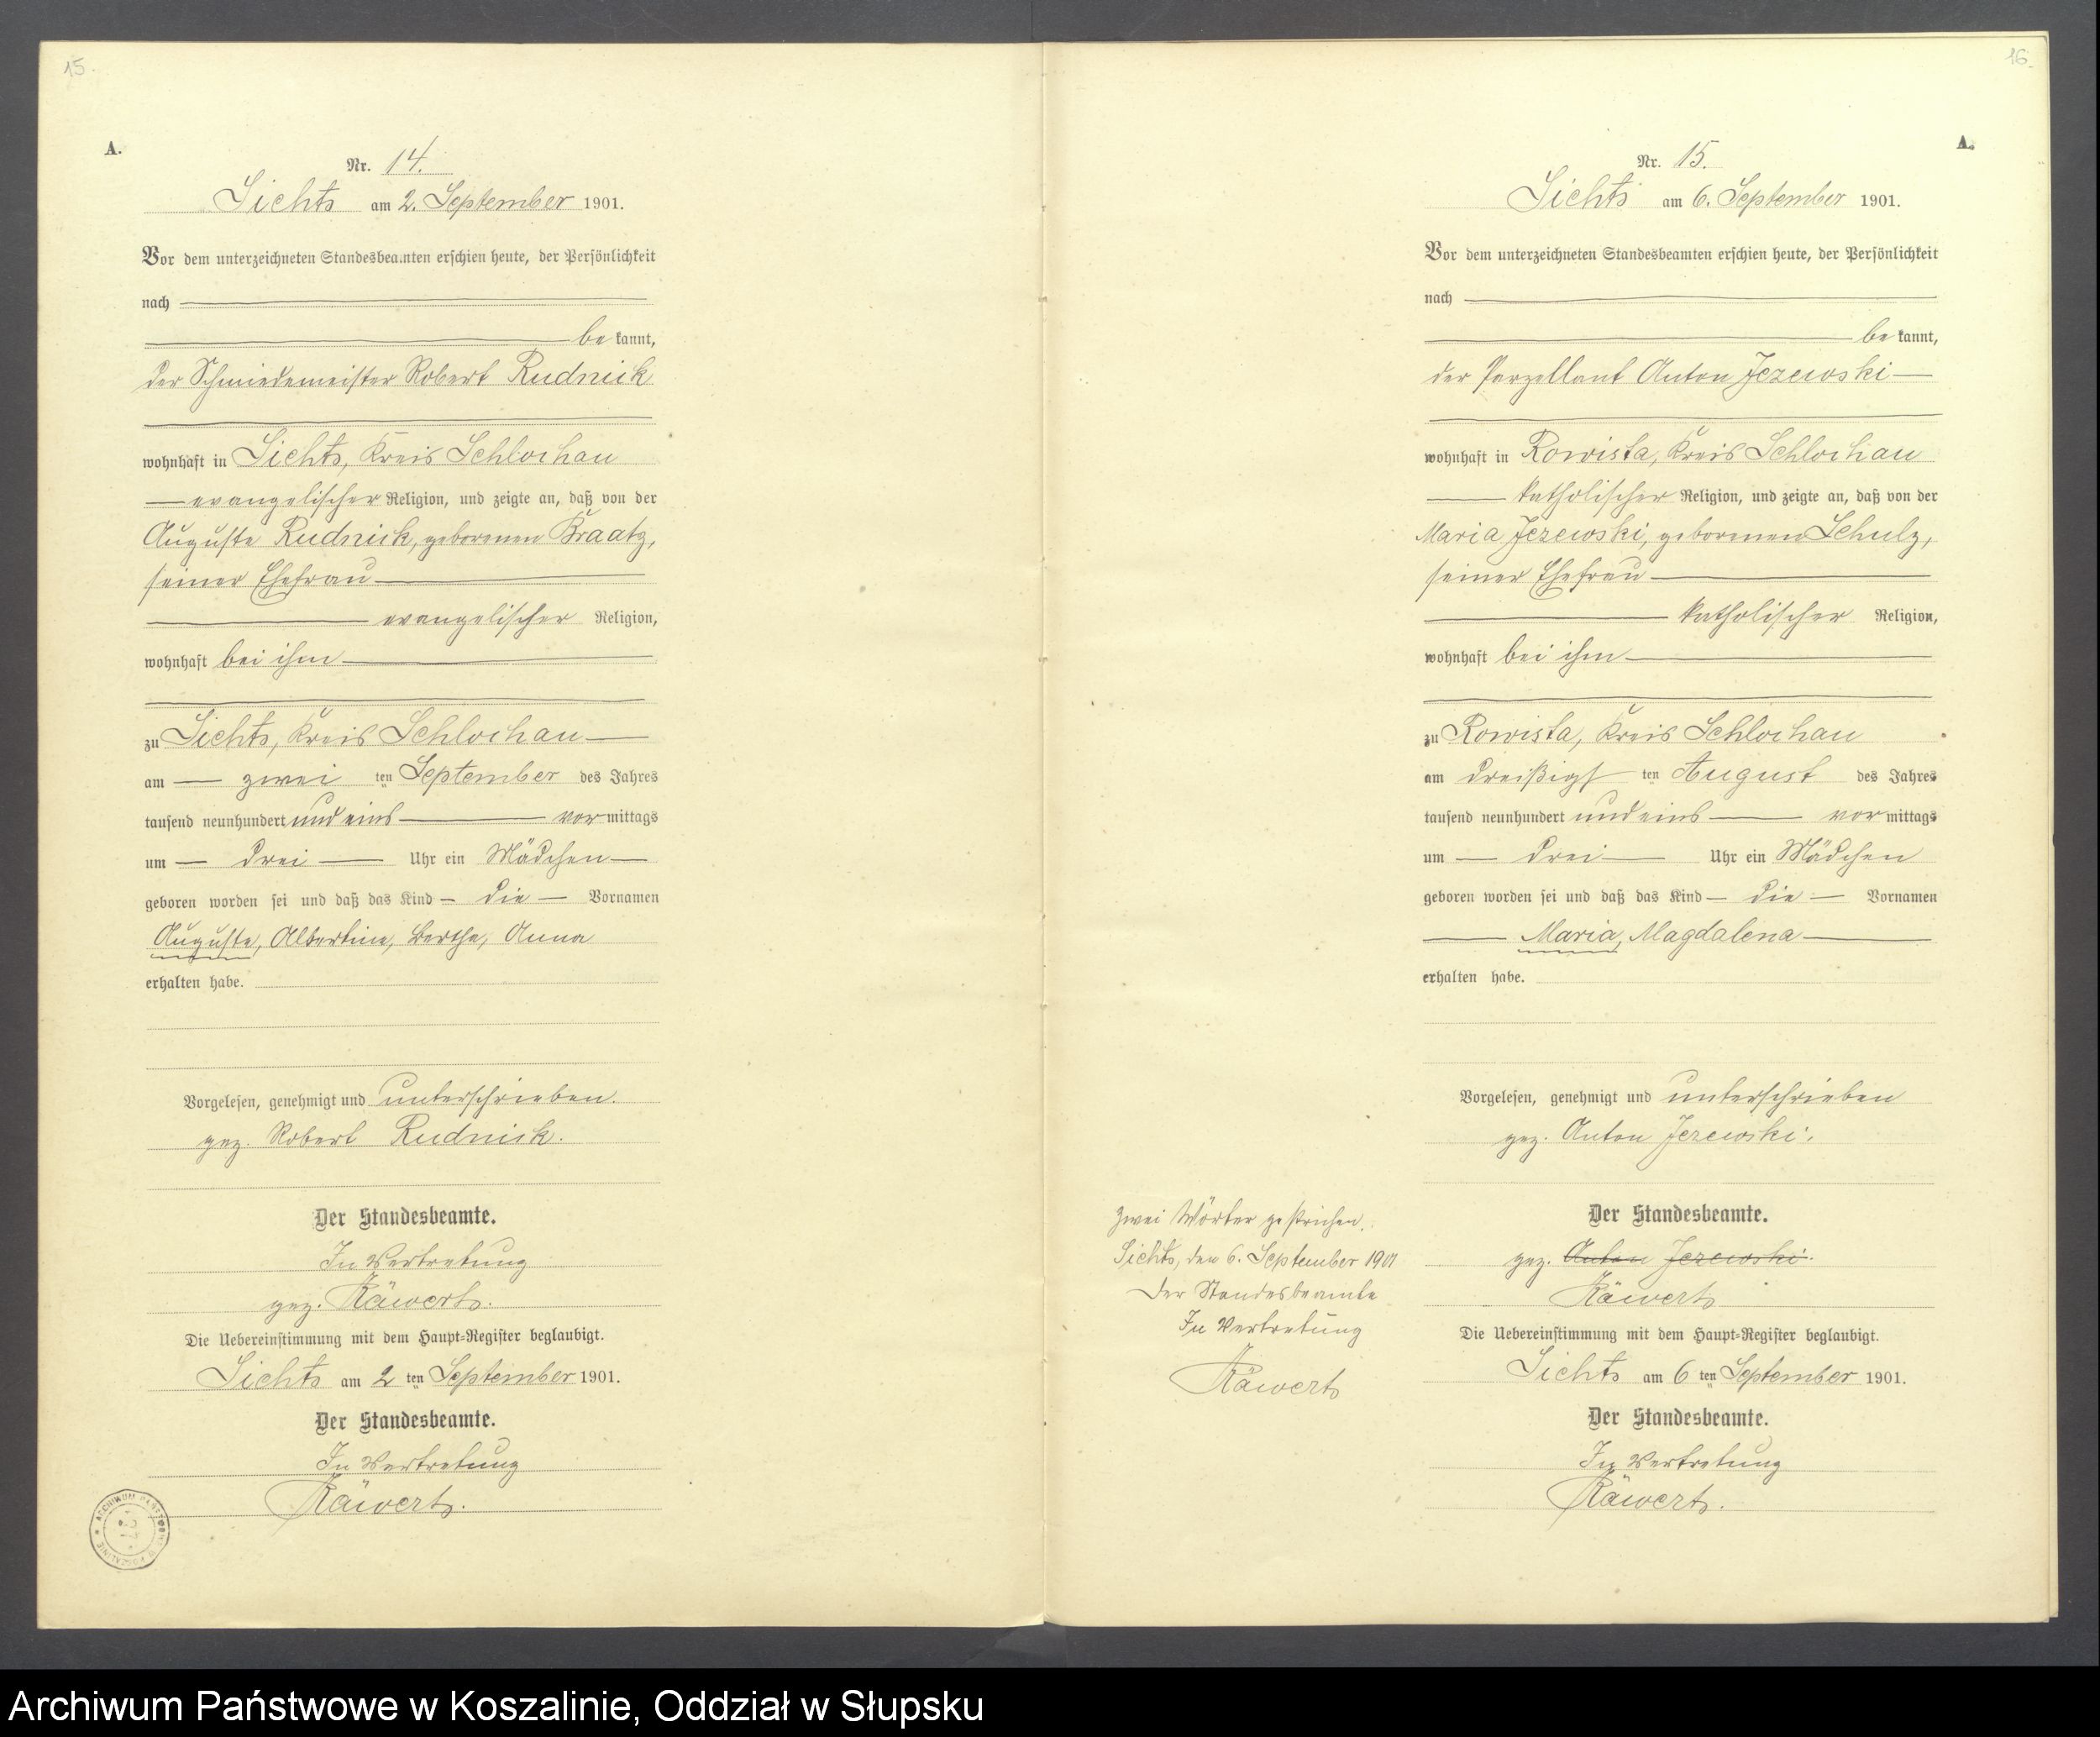 15.
A.
Nr. 14.
Sichts am 2. September 1901.
Vor dem unterzeichneten Standesbeamten erschien heute, der Persönlichkeit
nach
be kannt,
der Schmiedemeister Robert Rudnick
wohnhaft in Sichts, Kreis Schlochau
evangelischer Religion, und zeigte an, daß von der
Auguste Rudnick, geborenen Braatz,
seiner Ehefrau
evangelischer Religion,
wohnhaft bei ihm
zu Sichts, Kreis Schlochau
am zwei ten September des Jahres
tausend neunhundert und eins vor mittags
um drei Uhr ein Mädchen
geboren worden sei und daß das Kind die Vornamen
Auguste, Albertine, Bertha, Anna
erhalten habe.
Vorgelesen, genehmigt und unterschrieben.
gez. Robert Rudnick.
Der Standesbeamte.
In Vertretung
gez. Räwerts.
Die Uebereinstimmung mit dem Haupt-Register beglaubigt.
Sichts am 2 ten September 1901.
Der Standesbeamte.
In Vertretung
Räwerts.
16.
A.
Nr. 15.
Sichts am 6. September 1901.
Vor dem unterzeichneten Standesbeamten erschien heute, der Persönlichkeit
nach
be kannt,
der Parzellant Anton Jezewski
wohnhaft in Rowista, Kreis Schlochau
katholischer Religion, und zeigte an, daß von der
Maria Jezewski, geborenen Schulz,
seiner Ehefrau
katholischer Religion,
wohnhaft bei ihm
zu Rowista, Kreis Schlochau
am dreißigs ten August des Jahres
tausend neunhundert und eins vor mittags
um drei Uhr ein Mädchen
geboren worden sei und daß das Kind die Vornamen
Maria, Magdalena
erhalten habe.
Vorgelesen, genehmigt und unterschrieben
gez. Anton Jezewski.
Der Standesbeamte.
gez. Anton Jezewski.
Räwerts
Die Uebereinstimmung mit dem Haupt-Register beglaubigt.
Sichts am 6 ten September 1901.
Der Standesbeamte.
In Vertretung
Räwerts.
Zwei Wörter gestrichen.
Sichts, den 6. September 1901
Der Standesbeamte
In Vertretung
Räwerts
Archiwum Państwowe w Koszalinie, Oddział w Słupsku